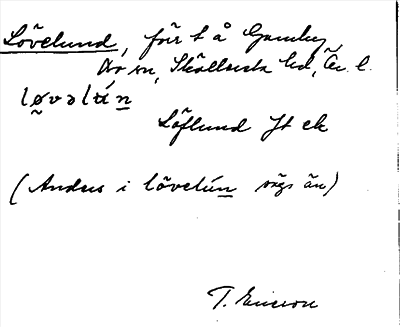 Lövelund, förr t å Gamby
Ar sn, Sköllersta hd, Ör. l.
løvəlún
Löflund Jt ek
(Anders i lövelún sägs än)
T. Ericson